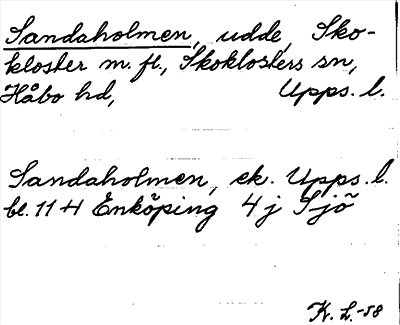 Sandaholmen, udde, Sko-
kloster m. fl., Skoklosters sn,
Håbo hd, Upps. l.
Sandaholmen, ek. Upps. l.
bl. 11 H Enköping 4 j Sjö
K. L. -58